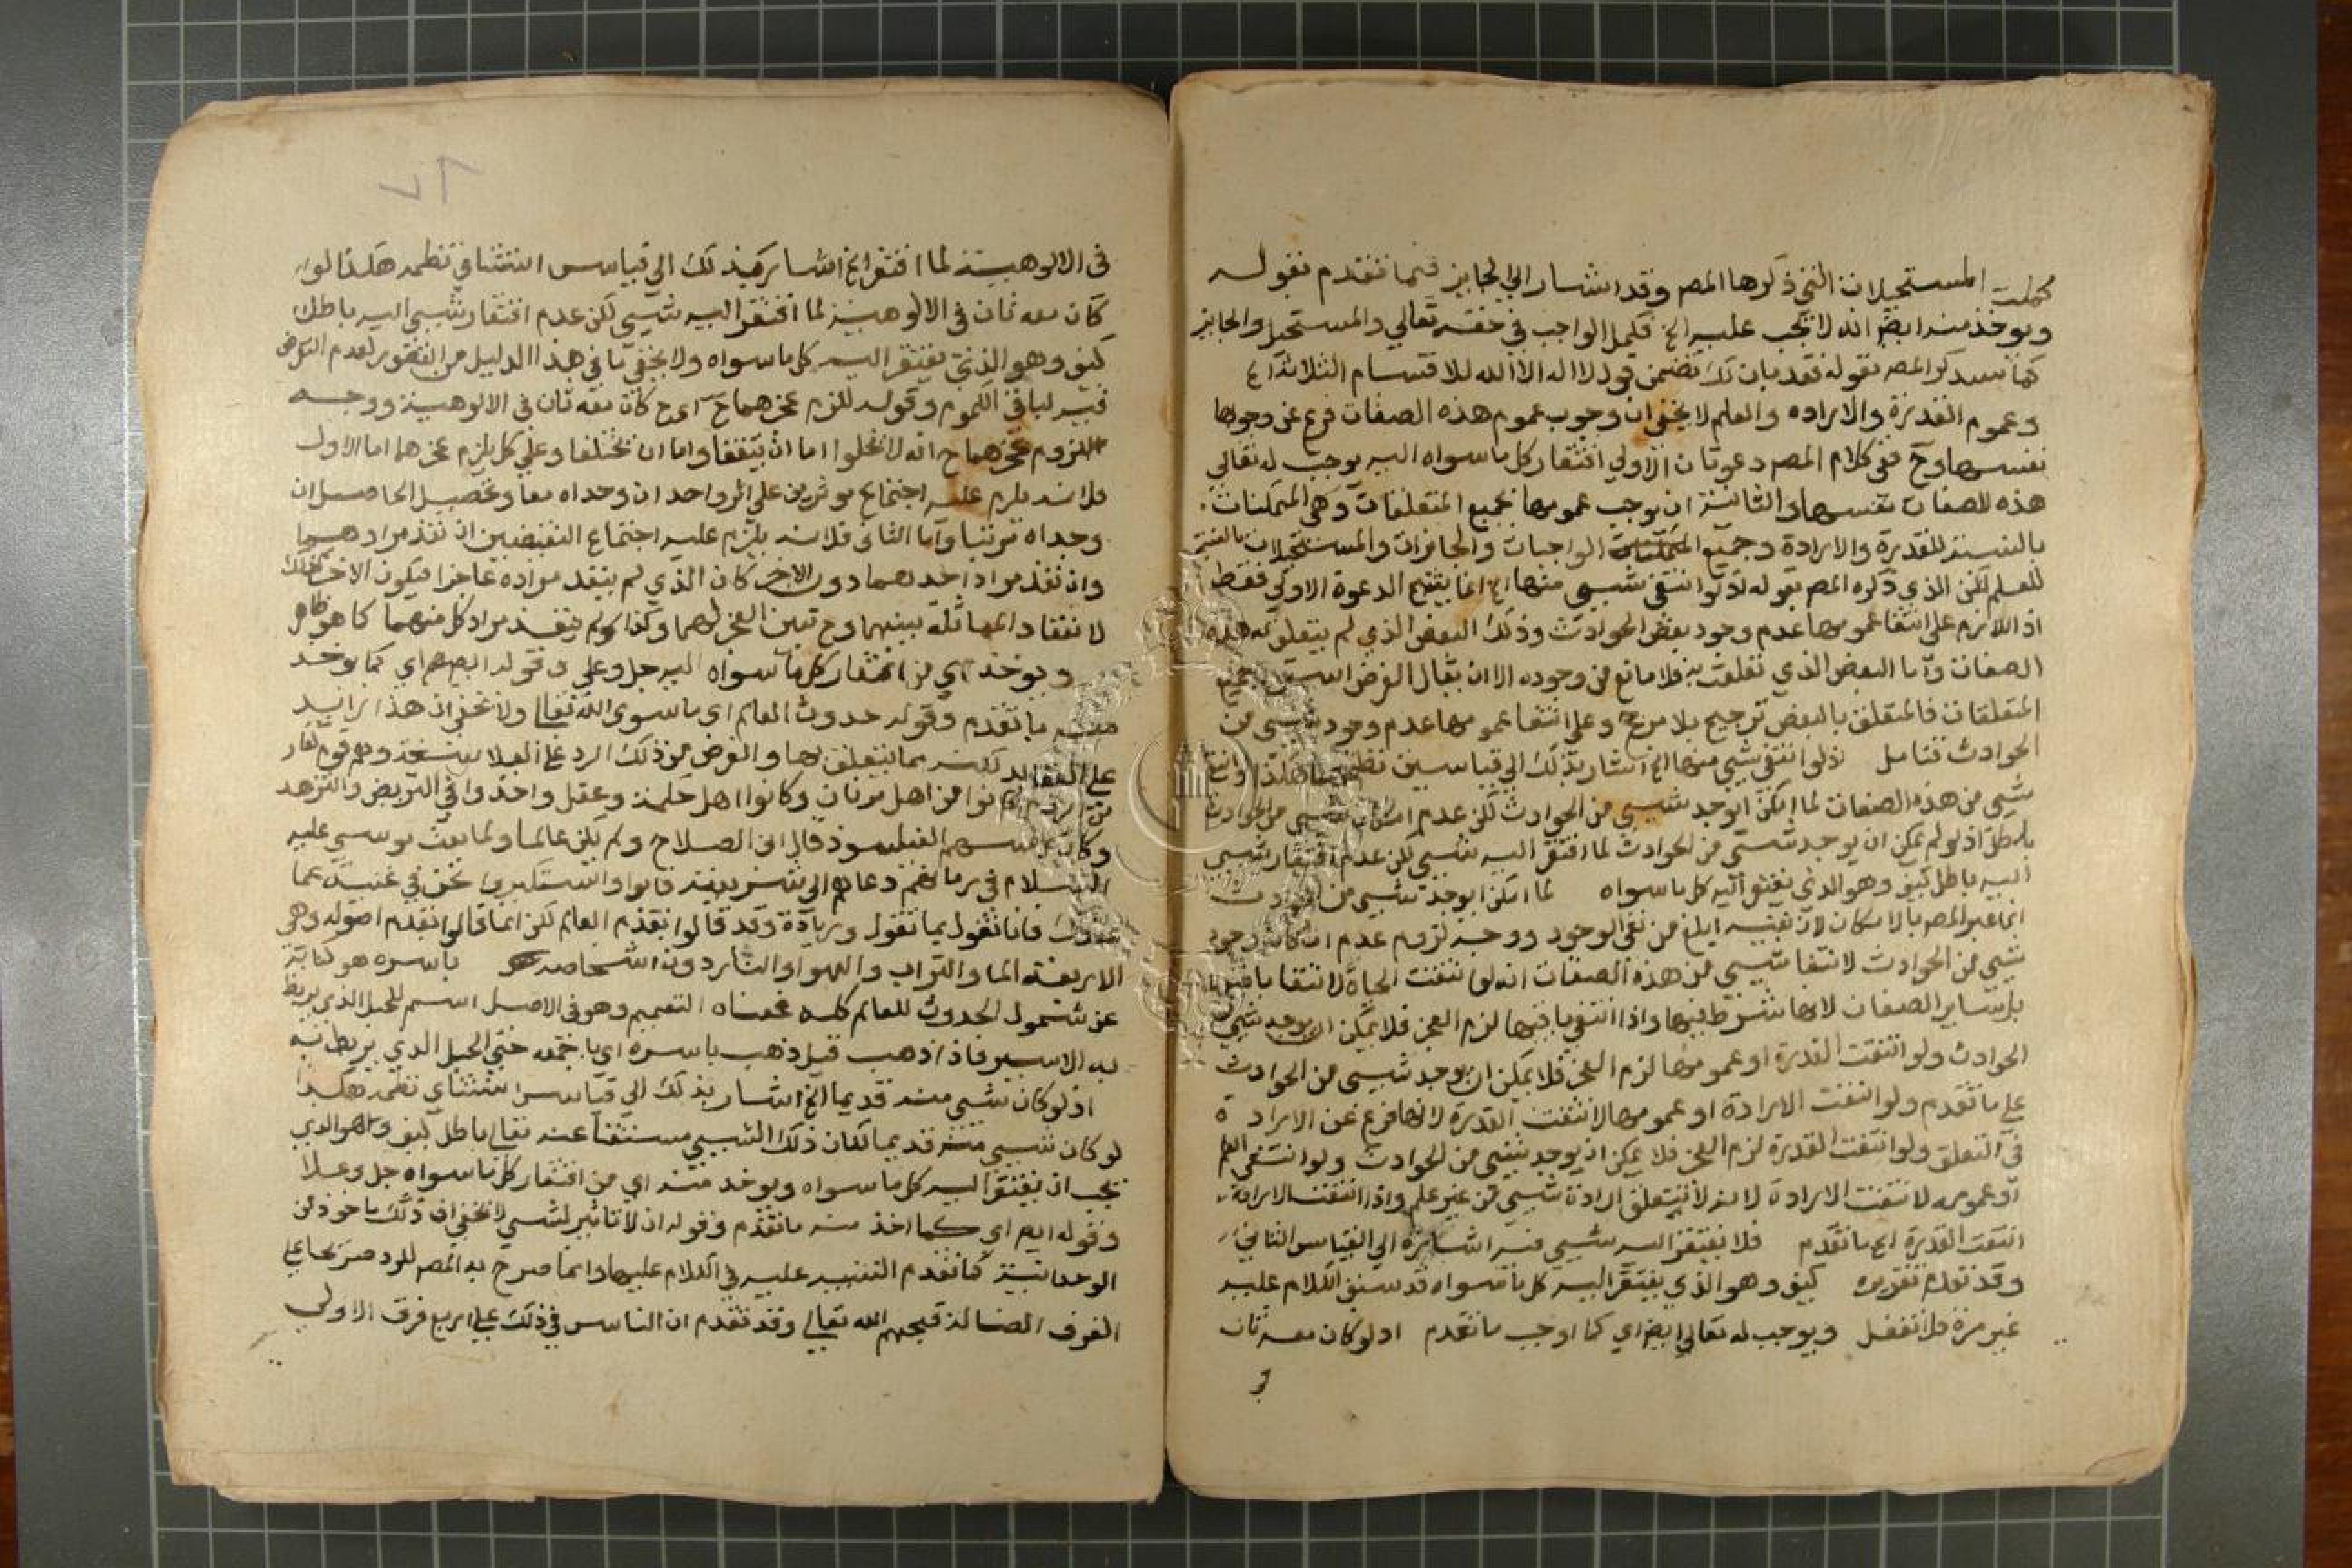 كملت المستحيلات التي ذكرها المصم وقد اشار الي الجايز فيما تقدم بقوله
ويوخذ منه ايضا انه لا يجب عليه الخ فكمل الواجب في حقه تعالي والمستحيل والجايز
كما سيذكر المصم بقوله فقد بان لك تضمن قول لا اله الا الله للاقسام الثلاثة الخ
وعموم القدرة والاراده والعلم لا يخفي ان وجوب عموم هذه الصفات فرع عن وجوبها
نفسها وح ففي كلام المصم دعوتان الاولي افتقار كل ما سواه اليه يوجب له تعالي
هذه الصفات نفسها والثانية ان يوجب عمومها بجميع المتعلقات وهي الممكنات
بالنسبة للقدرة والارادة وجميع الواجبات والجايزات والمستحيلات بالنسبة
للعلم لكن الذي ذكره المصم بقوله اذ لو انتفي شيي منها الخ انما ينتج الدعوة الاولي فقط
اذ اللازم علي انتفا عمومها عدم وجود بعض الحوادث وذلك البعض الذي لم يتعلق به هذه
الصفات واما البعض الذي تعلقت به فلا مانع من وجوده الا ان يقال الفرض استوا جميع
المتعلقات فالتعلق بالبعض ترجيح بلا مرجح وعلي انتفا عمومها عدم وجود شيي من
الحوادث فتامل اذ لو انتفي شيي منها الخ اشار بذلك الي قياسين نظمهما هكذا لو انتفي
شيي من هذه الصفات لما امكن ان يوجد شيي من الحوادث لكن عدم امكان شيي من الحوادث
باطل اذ لو لم يمكن ان يوجد شيي من الحوادث لما افتقر اليه شيي لكن عدم افتقار شيي
اليه باطل كيف وهو الذي يفتقر اليه كل ما سواه لما امكن ان يوجد شيي من الحوادث
انما عبر المصم بالامكان لان نفيه ابلغ من نفي الوجود ووجه لزوم عدم امكان وجود
شيي من الحوادث لانتفا شيي من هذه الصفات انه لو انتفت الحياة لانتفا باقيها
بل ساير الصفات لانها شرط فيها واذا انتفي باقيها لزم العجز فلا يمكن ان يوجد شيي من
الحوادث ولو انتفت القدرة او عمومها لزم العجز فلا يمكن ان يوجد شيي من الحوادث
علي ما تقدم ولو انتفت الارادة او عمومها لانتفت القدرة لانها فرع عن الارادة
في التعلق ولو انتفت القدرة لزم العجز فلا يمكن ان يوجد شيي من الحوادث ولو انتفي العلم
او عمومه لانتفت الارادة لانه لا يتعلق ارادة شيي من غير علم واذا انتفت الارادة
انتفت القدرة الخ ما تقدم فلا يفتقر اليه شيي فيه اشارة الي القياس الثاني
وقد تقدم تقريره كيف وهو الذي يفتقر اليه كل ما سواه قد سبق الكلام عليه
غير مرة فلا تغفل ويوجب له تعالي ايضا اي كما اوجب ما تقدم اذ لو كان معه ثان
في الالوهية لما افتقر الخ اشار بذلك الي قياس استثناي نظمه هكذا لو
كان معه ثان في الالوهية لما افتقر اليه شيي لكن عدم افتقار شيي اليه باطل
كيف وهو الذي يفتقر اليه كل ما سواه ولا يخفي ما في هذا الدليل من القصور لعدم التعرض
فيه لباقي الكموم وقوله للزم عجزهما ح اي ح كان معه ثان في الالوهية ووجه
لزوم عجزهما ح انه لا يخلوا اما ان يتفقا واما ان يختلفا وعلي كل يلزم عجزهما اما الاول
فلانه يلزم عليه اجتماع موثرين علي اثر واحد ان وجداه معا وتحصيل الحاصل ان
وجداه ترتبا واما الثاني فلانه يلزم عليه اجتماع النقيضين ان نفذ مرادهما
وان نفذ مراد احدهما دون الاخر كان الذي لم ينفذ مراده عاجزا فيكون الاخر كذلك
لانعقاد المماثلة بينهما وح تبين العجز لهما وكذا لو لم ينفذ مراد كل منهما كما هو ظاهر
ويوخذ اي من افتقار كل ما سواه اليه جل وعلي وقوله ايضا اي كما يوخذ
منه ما تقدم وقوله حدوث العالم اي ما سوي الله تعالي ولا يخفي ان هذا زايد
علي العقايد لكنه مما يتعلق بها والغرض من ذلك الرد علي الفلاسفة وهم قوم كفار
من الروم كانوا من اهل يونان وكانوا اهل حكمة وعقل واخذوا في التريض والتزهد
وكان رييسهم الفيلسوف قال الي الصلاح ولم يكن عالما ولما بعث موسي عليه
السلام في زمانهم دعاهم الي شريعته فابوا واستكبروا نحن في غنية عما
عندك فانا نقول بما تقول وزيادة وقد قالوا بقدم العالم لكن انما قالوا بقدم اصوله وهي
الاربعة الما والتراب والهوا والنار دون اشخاصه باسره هو كناية
عن شمول الحدوث للعالم كله فمعناه التعميم وهو في الاصل اسم للحبل الذي يربط
به الاسير فاذا ذهب قيل ذهب باسره اي باجمعه حتي الحبل الذي يربط به
اذ لو كان شيي منه قديما الخ اشار بذلك الي قياس استثناي نظمه هكذا
لو كان شيي منه قديما لكان ذلك الشيي مستغنيا عنه تعالي باطل كيف وهو الذي
يجب ان يفتقر اليه كل ما سواه ويوخذ منه اي من افتقار كل ما سواه جل وعلا
وقوله ايضا اي كما اخذ منه ما تقدم وقوله ان لا تاثير لشيي لا يخفي ان ذلك ماخوذ من
الوحدانية كما تقدم التنبيه عليه في الكلام عليها وانما صرح به المصم للرد صريحا علي
الفرق الضالة قبحهم الله تعالي وقد تقدم ان الناس في ذلك علي اربع فرق الاولي